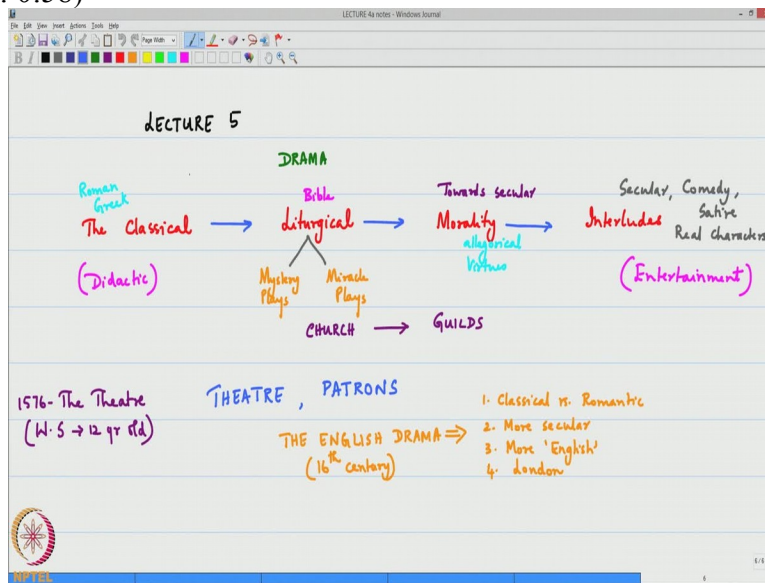 0:58)
LECTURE 4a notes - Windows Journal
File Edit View Insert Actions Tools Help
Page Width
B I
LECTURE 5
DRAMA
Roman
Greek
The Classical → Liturgical → Morality → Interludes
Bible
Towards secular
allegorical
Virtues
Secular, Comedy,
Satire
Real Characters
(Didactic)
Mystery
Plays
Miracle
Plays
(Entertainment)
CHURCH → GUILDS
1576- The Theatre
(W.S → 12 yr old)
THEATRE, PATRONS
THE ENGLISH DRAMA ⇒
(16th century)
1. Classical vs. Romantic
2. More secular
3. More 'English'
4. London
NPTEL
6/6
6